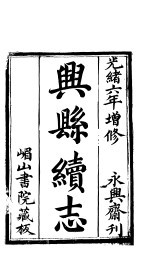 光緒六年增修
永興齋刊
興縣續志
嵋山書院藏板